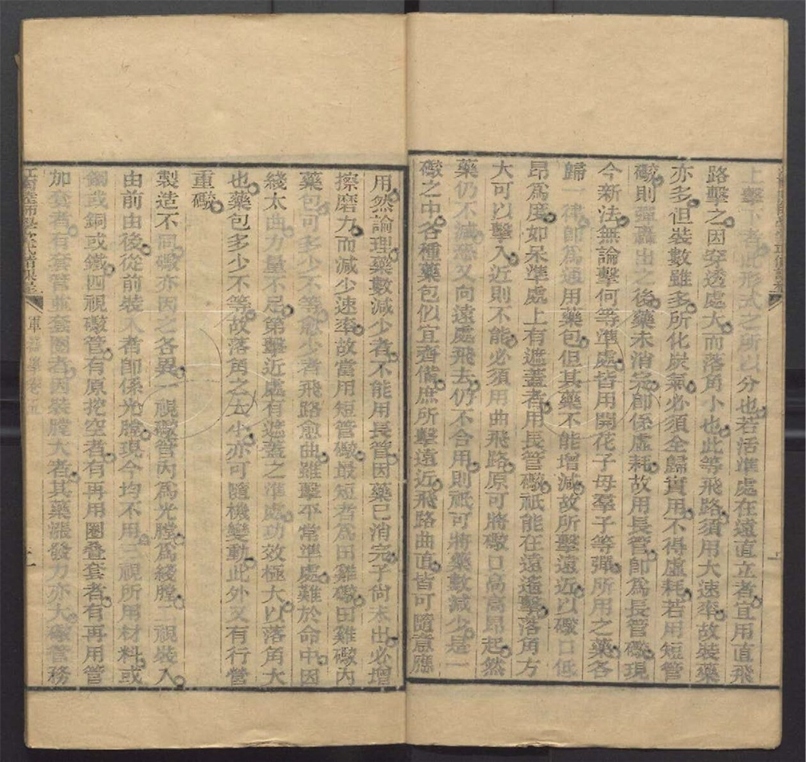 上擊下者此形式之所以分也若活準處在遠直立者宜用直飛
路擊之因穿透處大而落角小也此等飛路須用大速率故裝藥
亦多但裝數雖多所化炭氣必須全歸實用不得虛耗若用短管
礮則彈轟出之後藥未消完卽係虛耗故用長管卽爲長管礮現
今新法無論擊何等準處皆用開花子母羣子等彈所用之藥各
歸一律卽爲通用藥包但其藥不能增減故所擊遠近以礮口低
昂爲度如呆準處上有遮蓋者用長管礮祇能在遠遙擊落角方
大可以擊入近則不能必須用曲飛路原可將礮口高高昂起然
藥仍不減恐又向遠處飛去仍不合用則祇可將藥數減少是一
礮之中各種藥包似宜齊備庶所擊遠近飛路曲直皆可隨意應
用然論理藥數減少者不能用長管因藥已消完子尙未出必增
擦磨力而減少速率故當用短管礮最短者爲田雞礮田雞礮內
藥包可多少不等愈少者飛路愈曲雖擊平常準處難於命中因
綫太曲力量不足第擊近處有遮蓋之準處功效極大以落角大
也藥包多少不等故落角之大小亦可隨機變動此外又有行營
重礮
製造不同礮亦因之各異一視礮管內爲光膛爲綫膛一視裝入
由前由後從前裝入者卽係光膛現今均不用三視所用材料或
鋼或銅或鐵四視礮管有原挖空者有再用圈叠套者有再用管
加套者有套管兼套圈者因裝膛大者其藥漲發力亦大礮管務